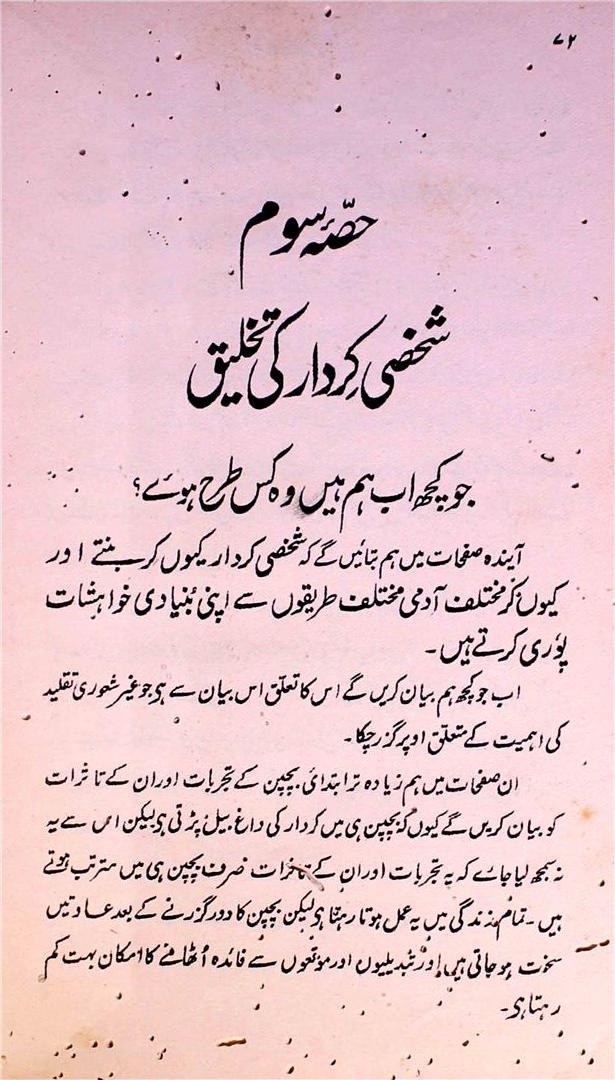 ۷۲
حصّۂ سوم
شخصی کِردار کی تخلیق
جو کچھ اب ہم ہیں وہ کس طرح ہوے؟
آیندہ صفحات میں ہم بتائیں گے کہ شخصی کردار کیوں کر بنتے اور
کیوں کر مختلف آدمی مختلف طریقوں سے اپنی بُنیادی خواہشات
پوُری کرتے ہیں۔
اب جو کچھ ہم بیان کریں گے اس کا تعلق اس بیان سے ہی جو غیر شعوری تقلید
کی اہمیت کے متعلق اوپر گزر چکا۔
ان صفحات میں ہم زیادہ تر ابتدائی بچپن کے تجربات اور ان کے تاثرات
کو بیان کریں گے کیوں کہ بچپن ہی میں کردار کی داغ بیل پڑتی ہی لیکن اس سے یہ
نہ سمجھ لیا جاے کہ یہ تجربات اور ان کے تاثرات صرف بچپن ہی میں مترتب ہوتے
ہیں۔ تمام زندگی میں یہ عمل ہوتا رہتا ہی لیکن بچپن کا دور گزرنے کے بعد عادتیں
سخت ہو جاتی ہیں اور تبدیلیوں اور موقعوں سے فائدہ اُٹھانے کا امکان بہت کم
رہتا ہی۔